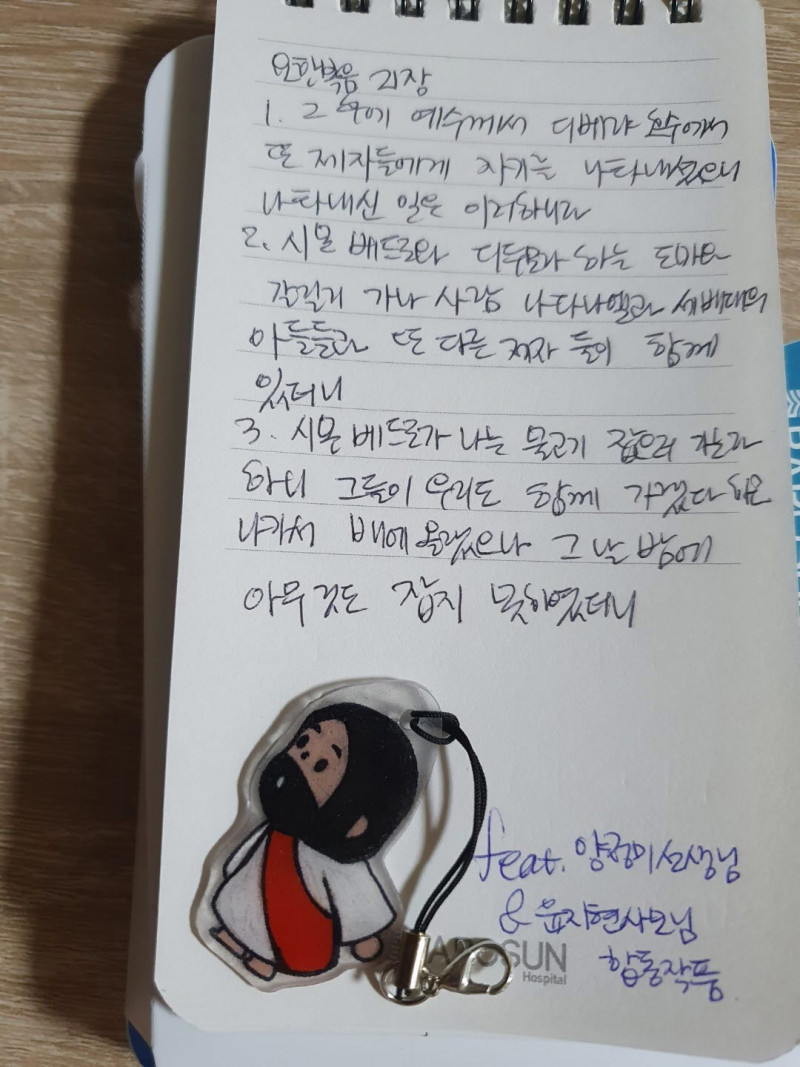 요한복음 21장
1. 그 후에 예수께서 디베랴 호수에서
또 제자들에게 자기를 나타내셨으니
나타내신 일은 이러하니라
2. 시몬 베드로와 디두모라 하는 도마와
갈릴리 가나 사람 나다나엘과 세베대의
아들들과 또 다른 제자 둘이 함께
있더니
3. 시몬 베드로가 나는 물고기 잡으러 가노라
하니 그들이 우리도 함께 가겠다 하고
나가서 배에 올랐으나 그 날 밤에
아무 것도 잡지 못하였더니
feat. 양정미선생님
& 윤지현사모님
합동작품
SUN
Hospital